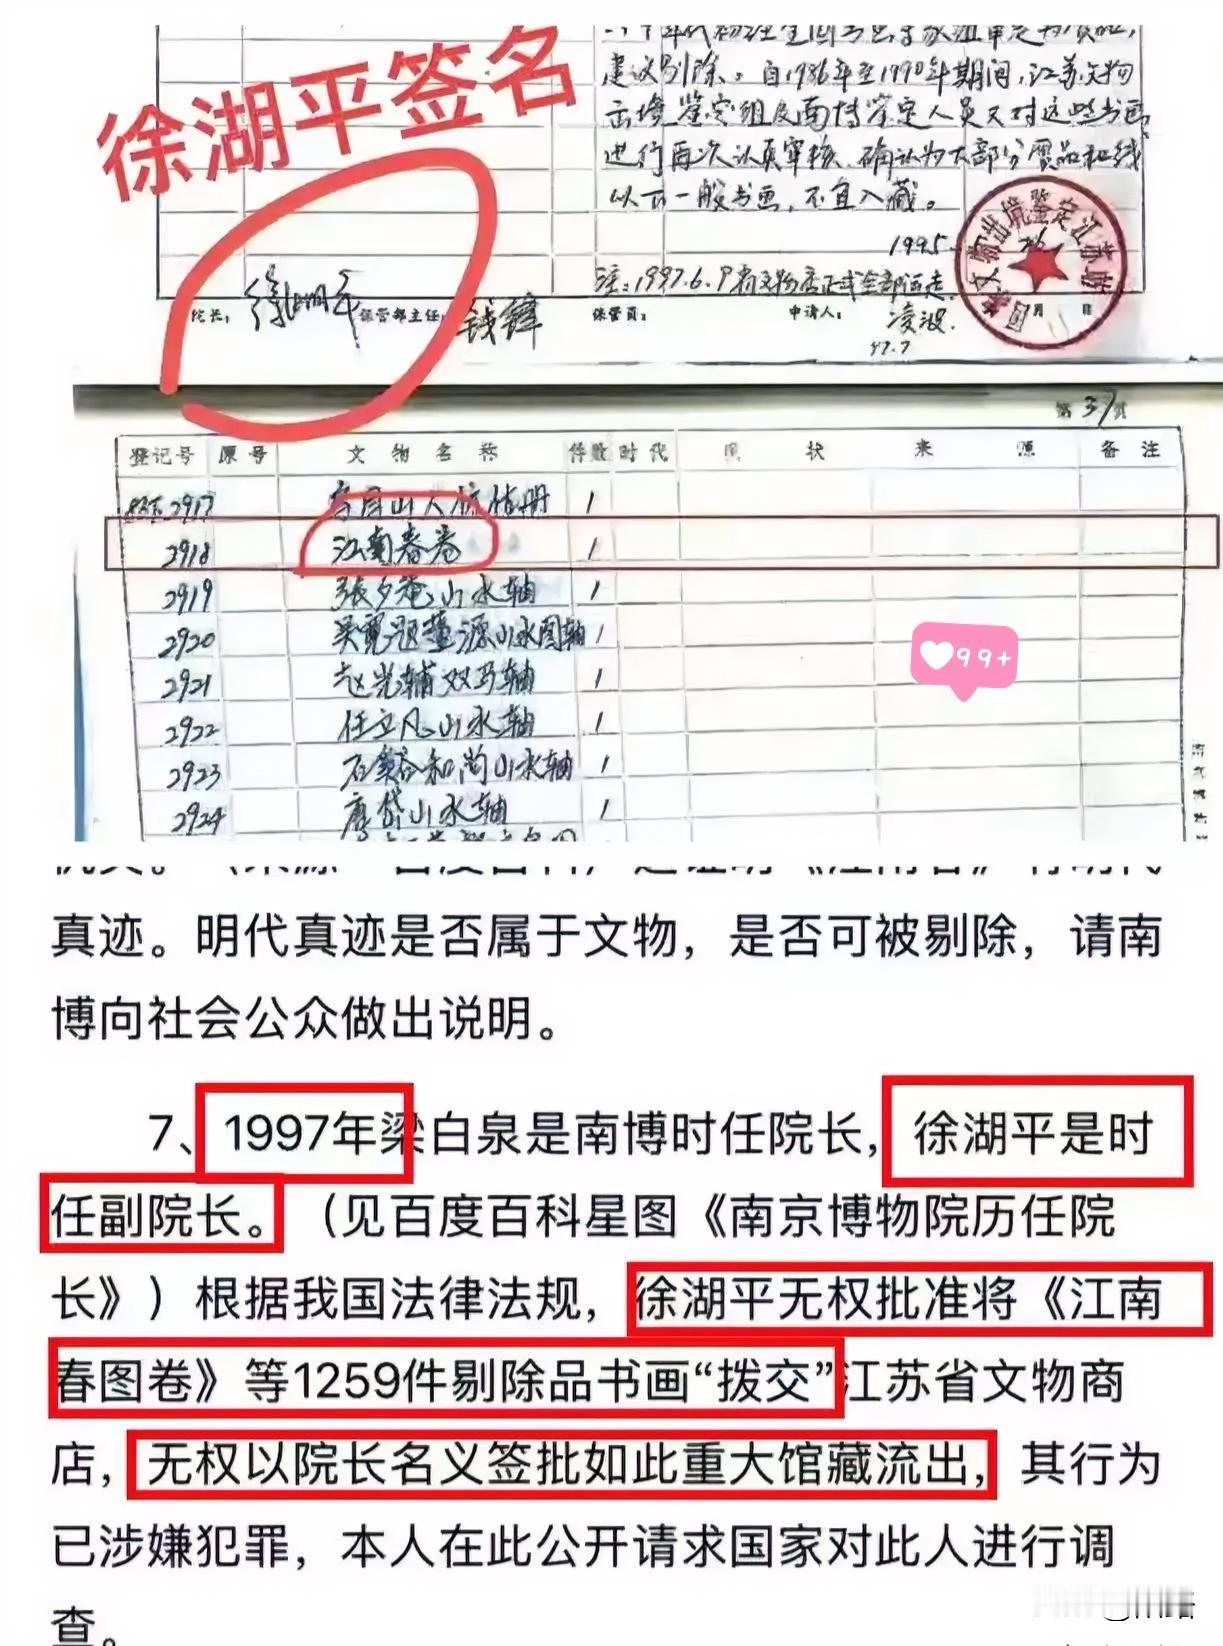 徐湖平签名
建议剔除。自1986年至1990年期间,江苏文物
出境鉴定组及南博鉴定人员又对这些书画
进行再次认真审核,确认为大部分赝品和线
以下一般书画,不宜入藏。
1995.
注:1997.6.9
院长: 徐湖平 保管部主任: 钱锋 保管员: 申请人: 凌波.
97.7
月 日
第37页
登记号 原号 文物名称 件数 时代 现状 来源 备注
2917 1
2918 江南春卷 1
2919 張夕菴山水轴 1
2920 吴寛题董源山水图轴 1
2921 赵光辅双马轴 1
2922 任立凡山水轴 1
2923 石溪和尚山水轴 1
2924 唐岱山水轴 1
99+
真迹。明代真迹是否属于文物,是否可被剔除,请南
博向社会公众做出说明。
7、1997年梁白泉是南博时任院长,徐湖平是时
任副院长。(见百度百科星图《南京博物院历任院
长》)根据我国法律法规,徐湖平无权批准将《江南
春图卷》等1259件剔除品书画“拨交”江苏省文物商
店,无权以院长名义签批如此重大馆藏流出,其行为
已涉嫌犯罪,本人在此公开请求国家对此人进行调
查。